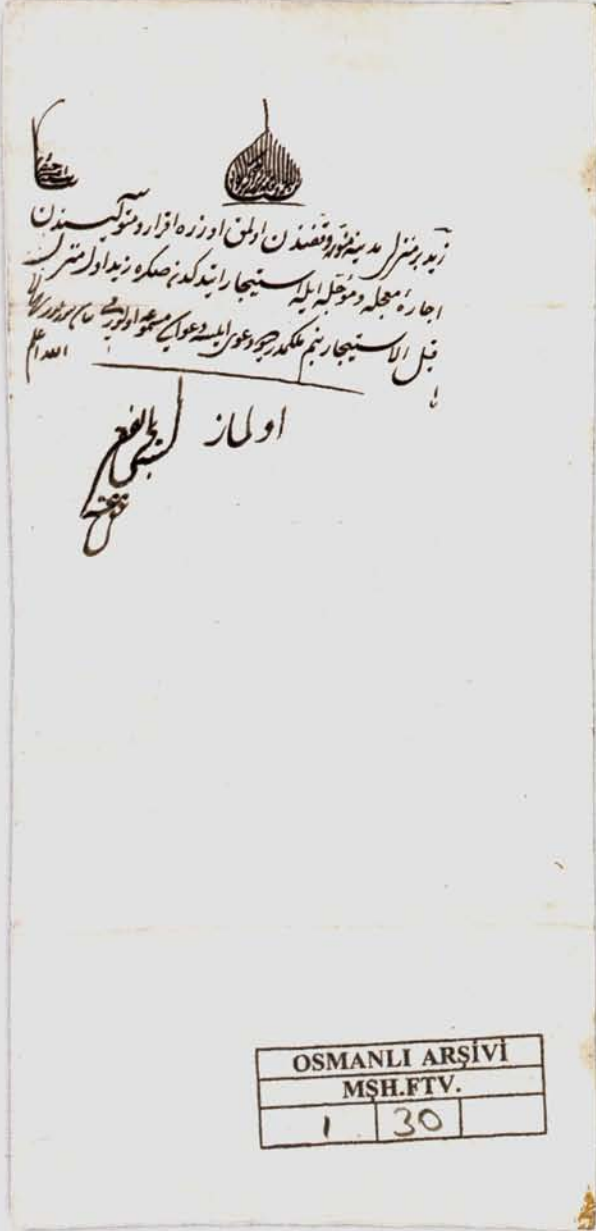 زید بر منزل مدینه منوره وقفندن اولمق اوزره اقرار و متولیسندن
اجارهٔ معجله و مؤجله ایله استیجار ایتدکدنصکره زید اول منزل
قبل الاستیجار بنم ملکمدر دیو دعوی ایلسه دعواسی مسموعه اولورمی بیان بیوریله
الله اعلم
اولماز
عفی عنه
OSMANLI ARŞİVİ
MŞH.FTV.
1 30